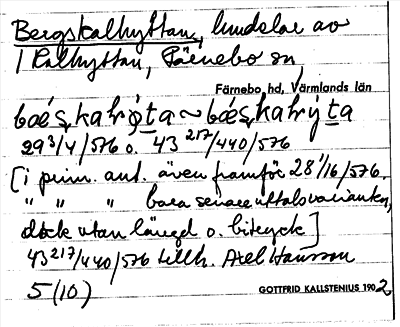 Bergskalhyttan, lundelar av
1 Kalhyttan, Färnebo sn
Färnebo hd, Värmlands län
29³/4/576 o. 43 ²¹⁷/440/576
[i prim. ant. även framför 28¹/16/576.
" " " bara senare uttalsvarianten,
dock utan längd o. bitryck]
43²¹⁷/440/576 tillh. Axel Hansson
5 (10)
GOTTFRID KALLSTENIUS 1902